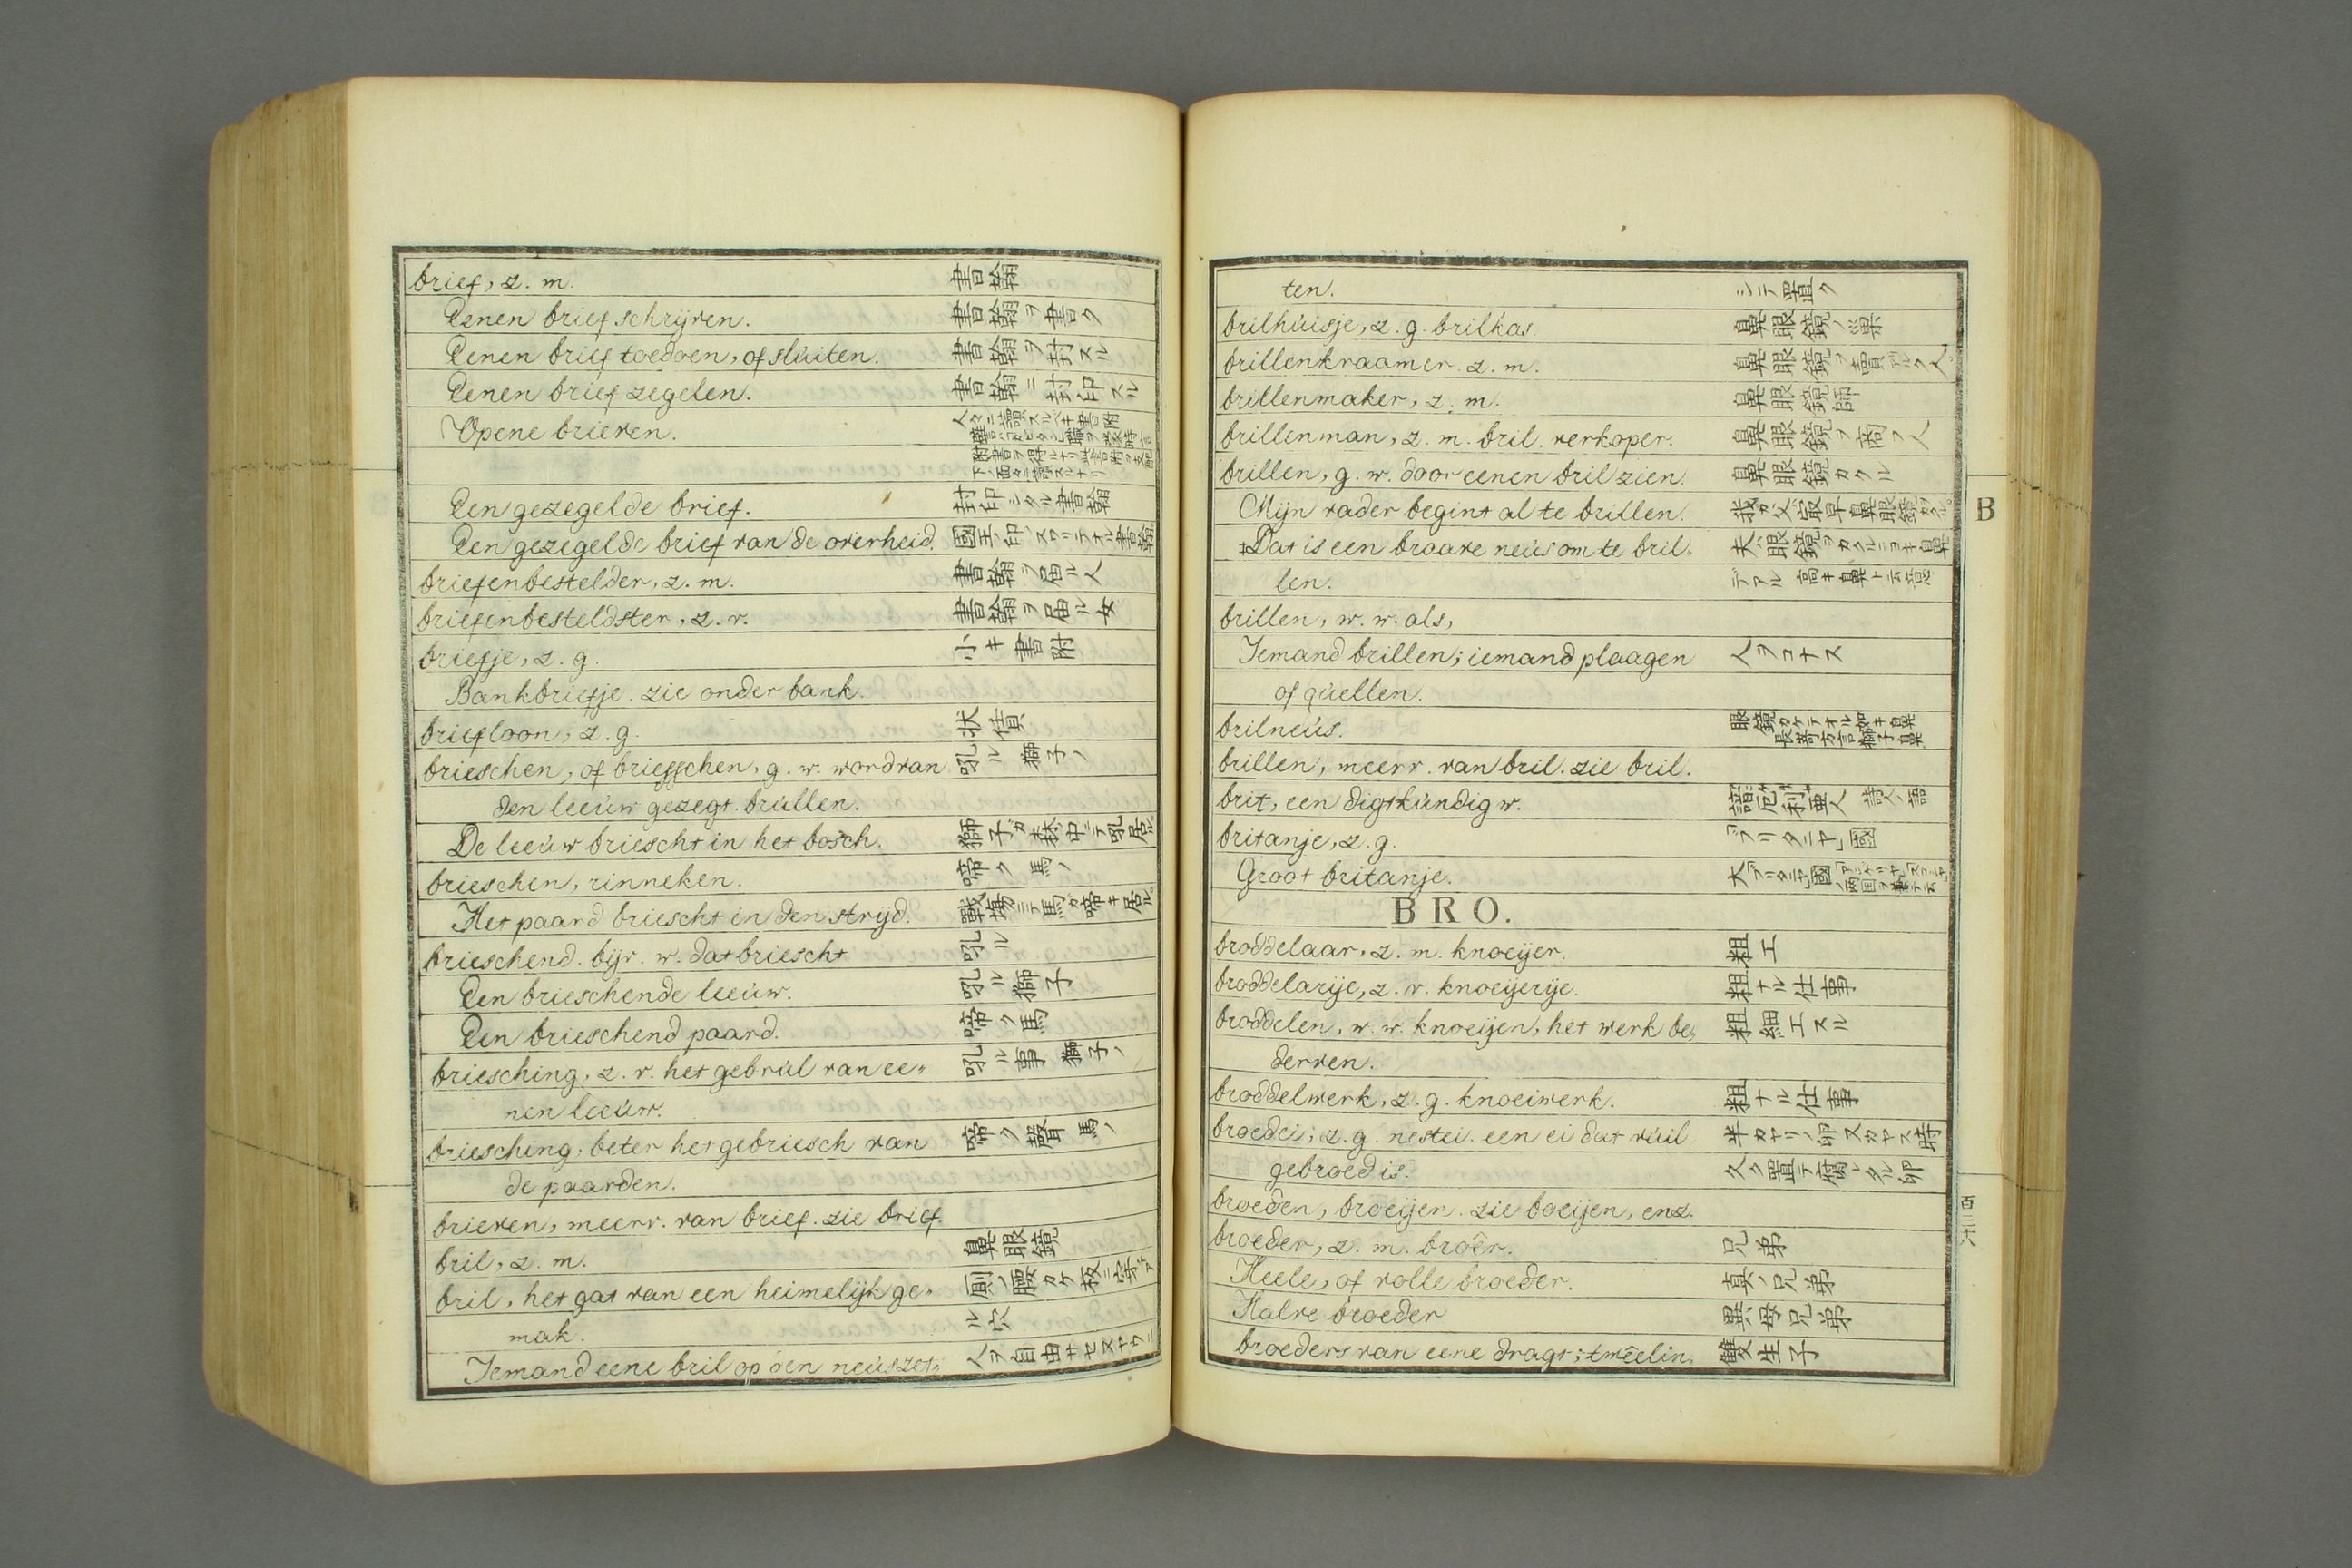 brief, z. m. 書翰
Eenen brief schrijven. 書翰ヲ書ク
Eenen brief toedoen, of slúiten. 書翰ヲ封スル
Eenen brief zegelen. 書翰ニ封印スル
Opene brieven.
Een gezegelde brief. 封印シタル書翰
Een gezegelde brief van de overheid. 國王ノ印ノスワリテオル書翰
briefenbestelder, z. m. 書翰ヲ届ル人
briefenbesteldster, z. v. 書翰ヲ届ル女
briefje, z. g. 小キ書附
Bankbriefje. zie onder bank.
briefloon, z. g. 状賃
brieschen, of briesschen, g. w. word van 吼ル 獅子ノ
den leeúw gezegt. brúllen.
De leeúw briescht in het bosch. 獅子ガ森中ニテ吼居ル
brieschen, rinneken. 啼ク 馬ノ
Het paard briescht in den strijd. 戰場ニテ馬ガ啼キ居ル
brieschend. bijv. w. dat briescht 吼ル
Een brieschende leeúw. 吼ル獅子
Een brieschend paard. 啼ク馬
briesching, z. v. het gebrúl van ee„ 吼ル事 獅子ノ
nen leeúw.
briesching, beter het gebriesch van 啼ク聲 馬ノ
de paarden.
brieven, meerv. van brief. zie brief.
bril, z. m. 鼻眼鏡
bril, het gat van een heimelijk ge„ 厠ノ腰カケ板ニ穿テ
mak. ル穴
Iemand eene bril op den neús zet„ 人ヲ自由サセヌヤウニ
ten. シテ置ク
brilhúisje, z. g. brilkas. 鼻眼鏡ノ巣
brillenkraamer. z. m. 鼻眼鏡ヲ賣アルク人
brillenmaker, z. m. 鼻眼鏡師
brillenman, z. m. bril. verkoper. 鼻眼鏡ヲ商フ人
brillen, g. w. door eenen bril zien. 鼻眼鏡カクル
Mijn vader begint al te brillen. 我ガ父ガ最早鼻眼鏡カクル
B
Dat is een braave neús om te bril. 夫ハ眼鏡ヲカクルニヨキ鼻
len. デアル 高キ鼻ト云意
brillen, w. w. als,
Iemand brillen; iemand plaagen 人ヲコナス
of qúellen.
brilneús. 眼鏡カケテオル如キ鼻 長崎方言獅子鼻
brillen, meerv. van bril. zie bril.
brit, een digtkúndig w. 諳厄利亜人 詩人ノ語
britanje, z. g. 「ブリタニヤ」國
Groot britanje. 大「ブリタニヤ」國
BRO.
broddelaar, z. m. knoeijer. 粗工
broddelarije, z. v. knoeijerije. 粗ナル仕事
broddelen, w. w. knoeijen, het werk be„ 粗細工スル
derven.
broddelwerk, z. g. knoeiwerk. 粗ナル仕事
broedei; z. g. nestei. een ei dat vúil 半カヤリノ卵 又カヤス時
gebroed is. 久ク置テ腐レタル卵
broeden, broeijen. zie boeijen, enz.
broeder, z. m. broêr. 兄弟
Heele, of volle broeder. 真ノ兄弟
Halve broeder 異母兄弟
broeders van eene dragt; tweelin, 雙生子
百三十六